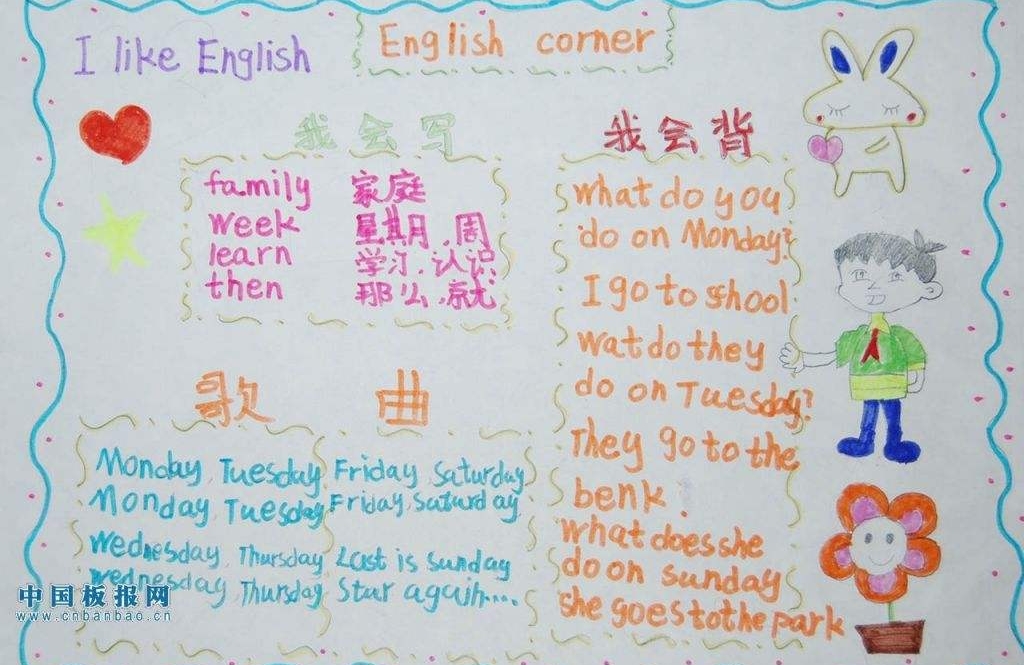 I like English
English corner
我会写
family 家庭
week 星期,周
learn 学习,认识
then 那么,就
我会背
what do you
do on Monday?
I go to shool
wat do they
do on Tuesday?
They go to the
benk.
what does she
do on sunday
she goes to the park
歌曲
Monday, Tuesday Friday, Saturday
Monday, Tuesday Friday, Saturday
Wednesday, Thursday Last is sunday
Wednesday, Thursday Stur again....
中国板报网
www.cnbanbao.cn